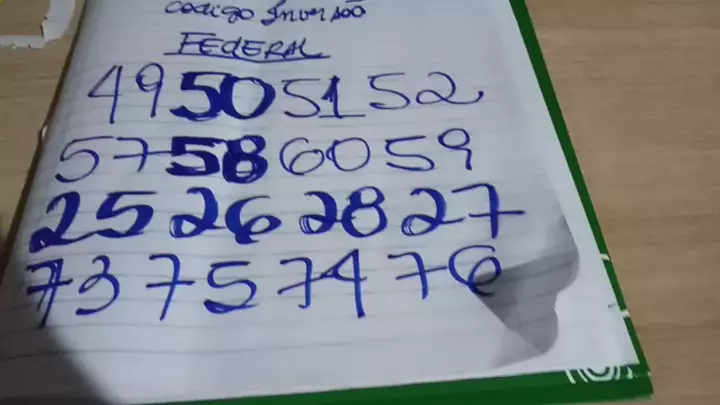 Codigo Inversão
FEDERAL
49 50 51 52
57 58 60 59
25 26 28 27
73 75 74 76